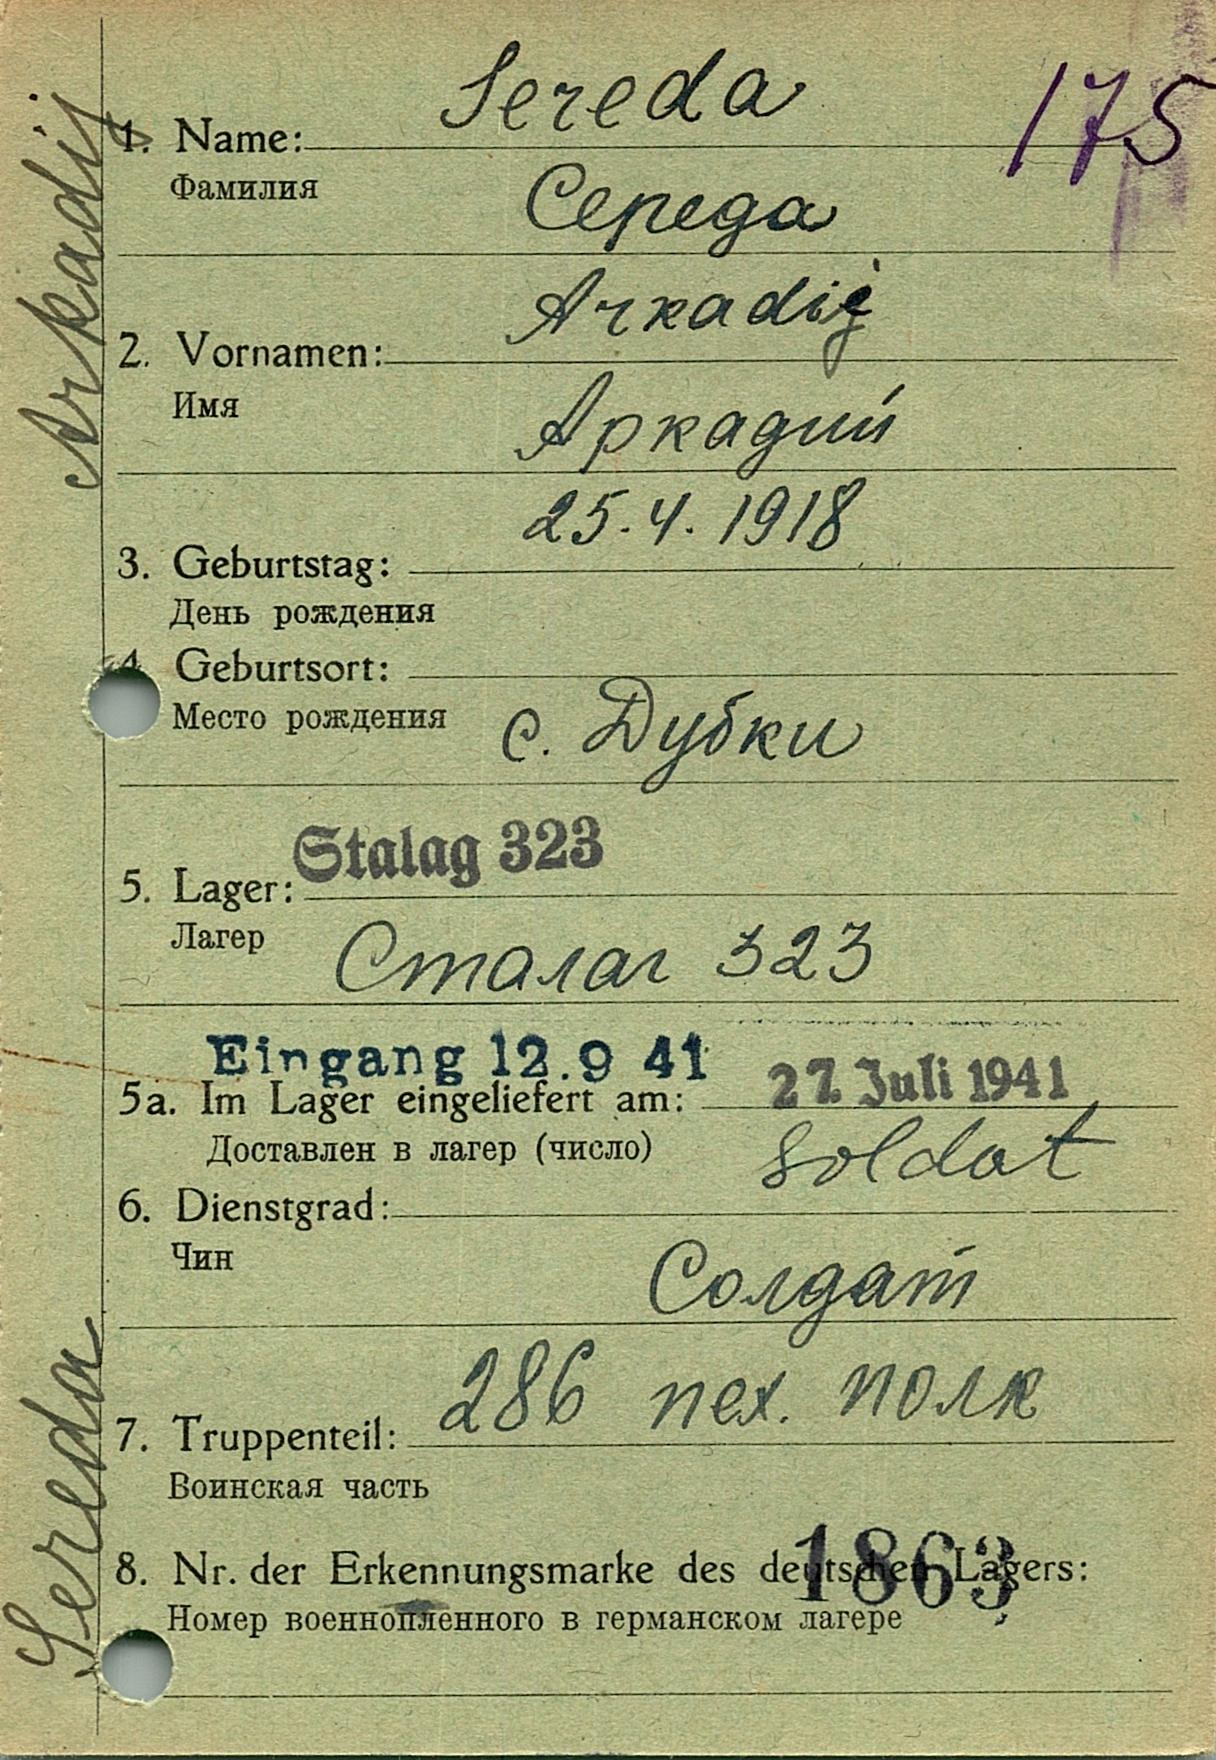 Sereda
175
1. Name:
Фамилия
Середа
Arkadij
2. Vornamen:
Имя
Аркадий
25.4.1918
3. Geburtstag:
День рождения
4. Geburtsort:
Место рождения с. Дубки
Stalag 323
5. Lager:
Лагер
Сталаг 323
Eingang 12.9 41
27. Juli 1941
5a. Im Lager eingeliefert am:
Доставлен в лагер (число)
Soldat
6. Dienstgrad:
Чин
Солдат
286 пех. полк
7. Truppenteil:
Воинская часть
1863
8. Nr. der Erkennungsmarke des deutschen Lagers:
Номер военнопленного в германском лагере
Sereda Arkadij